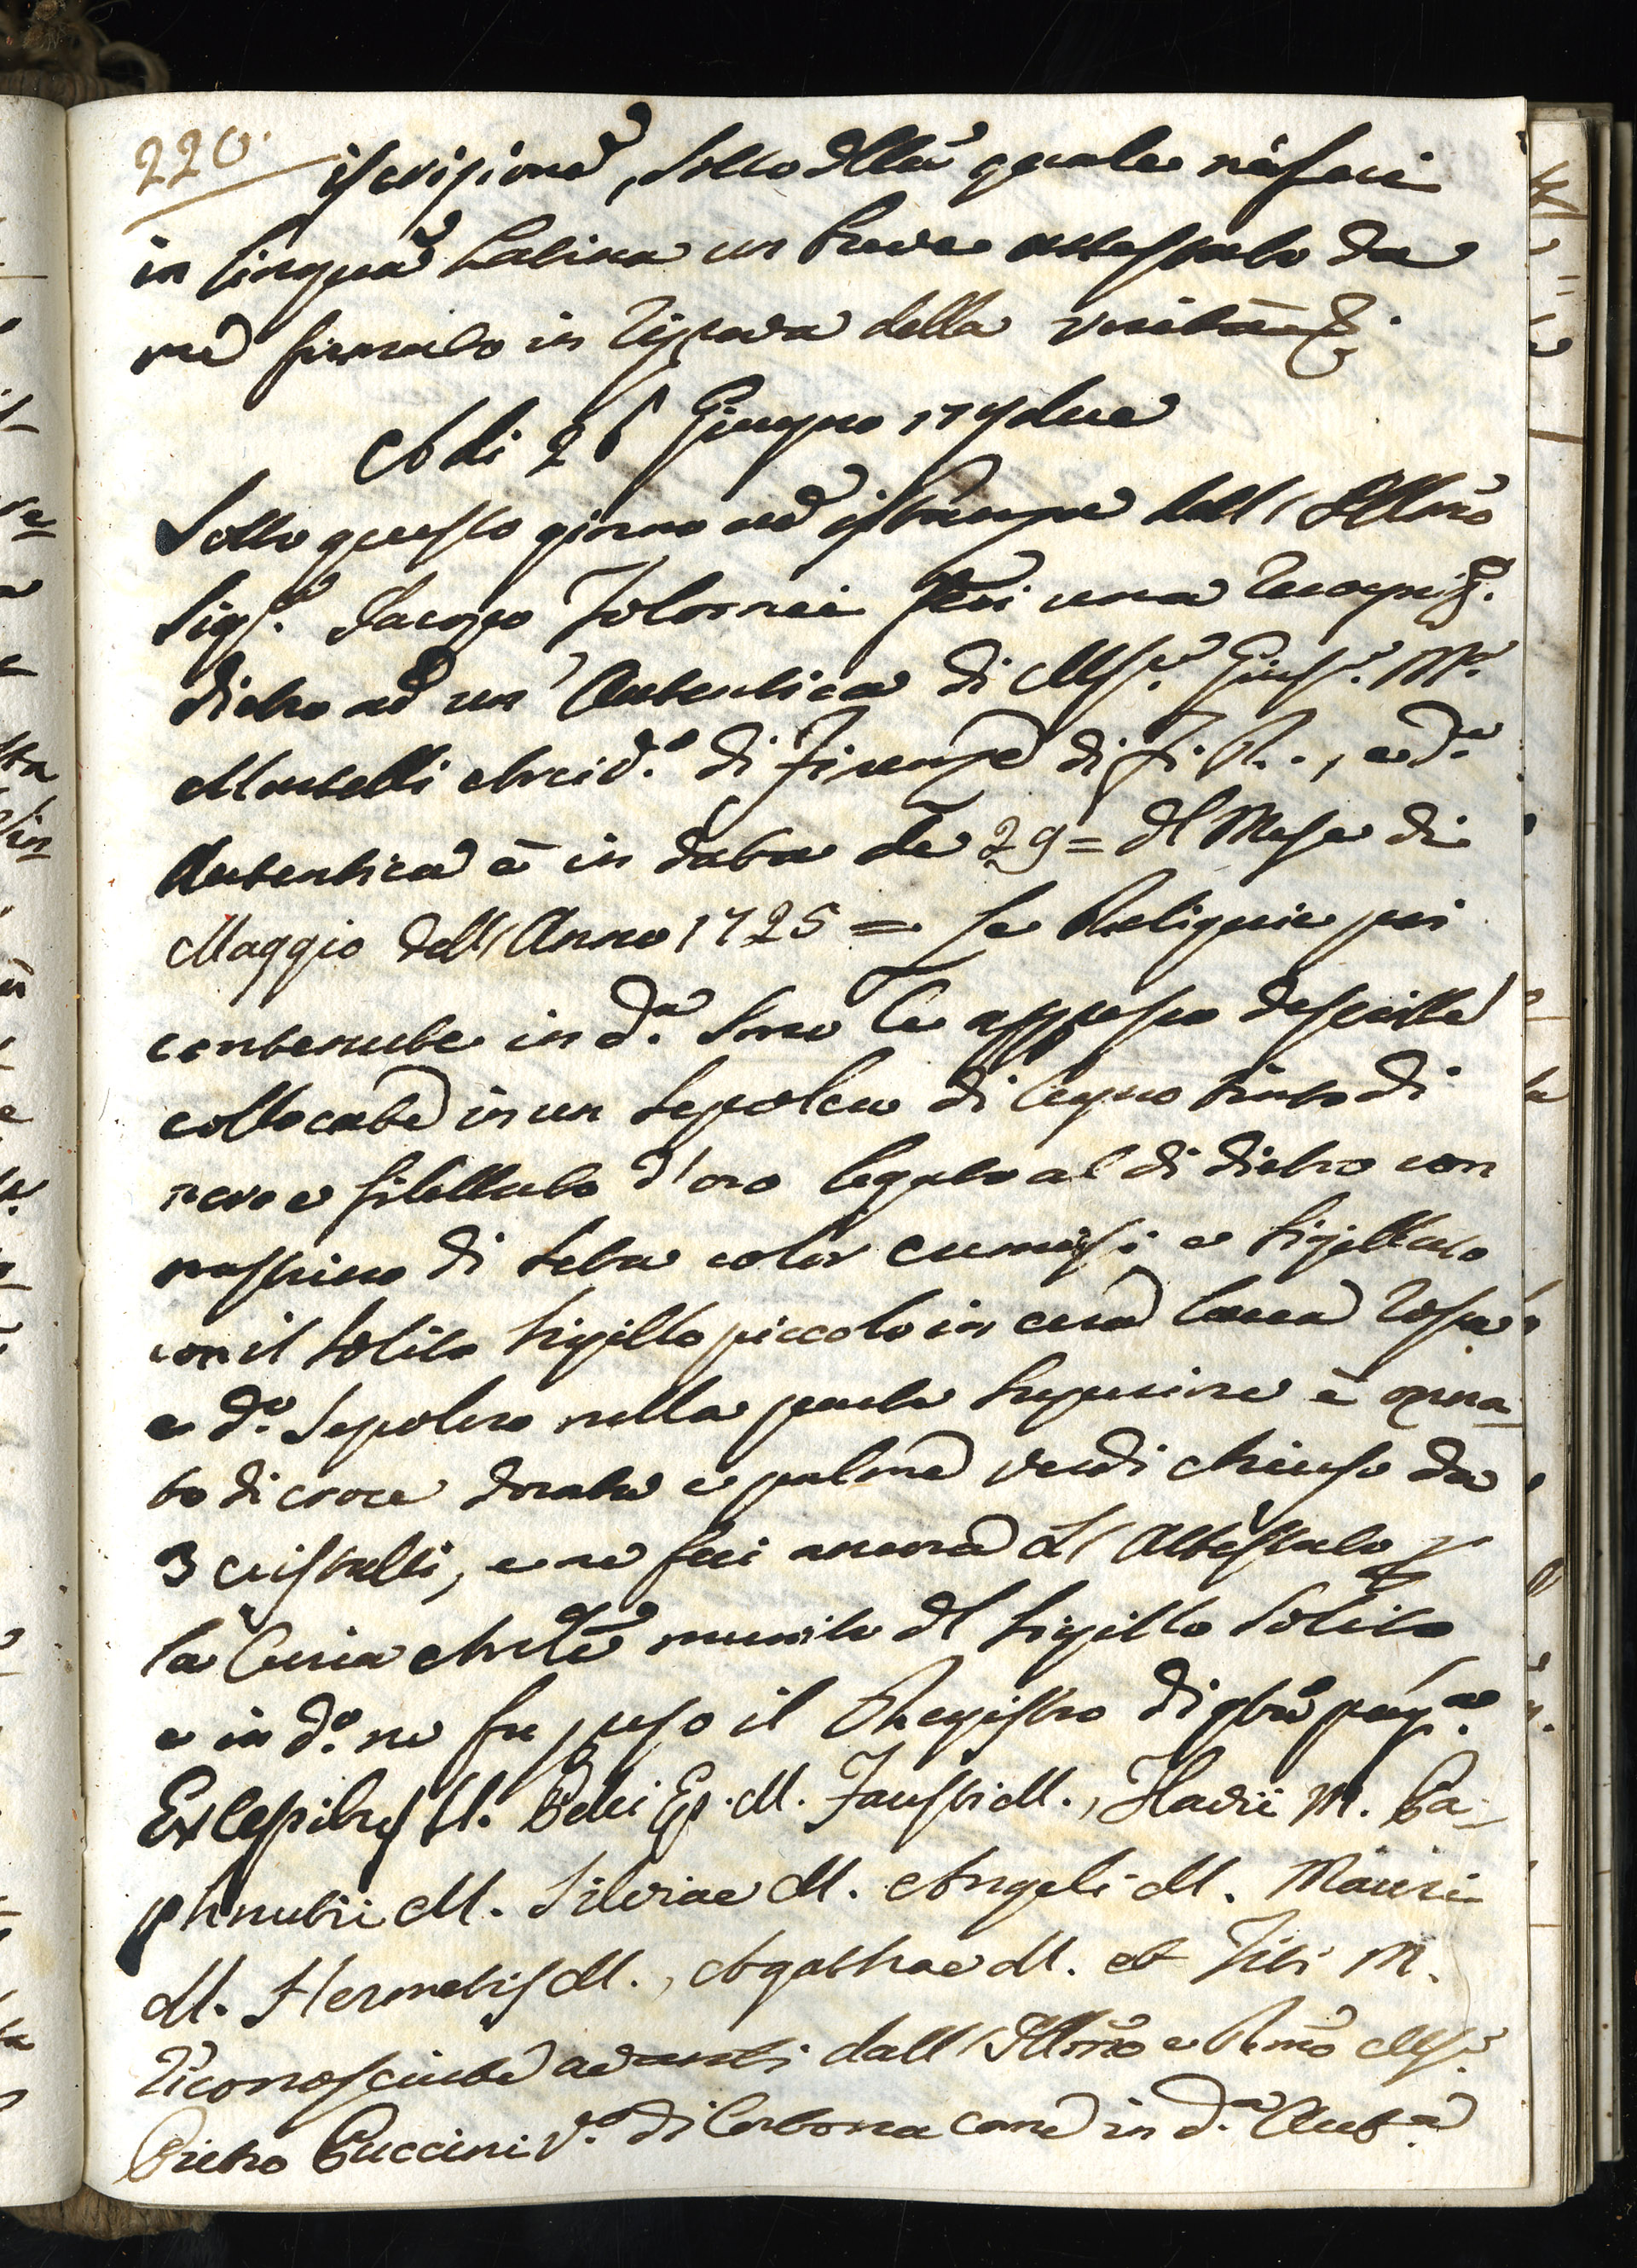 220.
iscrizione, sotto dlla quale nè feci
in lingua Latina un breve attestato da
me firmato in riprova della verità &.
A di 26 Giugno 179due
Sotto questo giorno ad istanza dell'Illmo
Sigr. Jacopo Tolomei feci una recogniz.
dietro ad un'Autentica di Msr. Gius. Ma.
Martelli Arcivo. di Firenze di F. R., e da.
Autentica è in data de 29= dl Mese di
Maggio dell'Anno 1725 = Le Reliquie poi
contenute in da. sono le appresso descritte
collocate in un sepolcro di legno tinto di
nero e filettato d'oro legato al di dietro con
nastrino di seta color cremisi e sigillato
con il solito sigillo piccolo in cera lacca rossa
e do. Sepolcro nella parte superiore è orna-
to di croce dorata e palme verdi chiuso da
3 cristalli, e ne feci ancora l'Attestato p
la Curia Arcile munito dl sigillo solito
e in do. ne fu preso il Registro di qta
Ex Cossibus SS. Ep. M. Fausti M., Ilarii M. Pa-
phnutii M. Silviae M. Angeli M. Mauri
M. Hermetis M., Agathae M. et Titi M.
riconosciute avanti dall'Illmo e Rmo Msr.
Pietro Puccini Vo. di Cortona come in da. Auta.